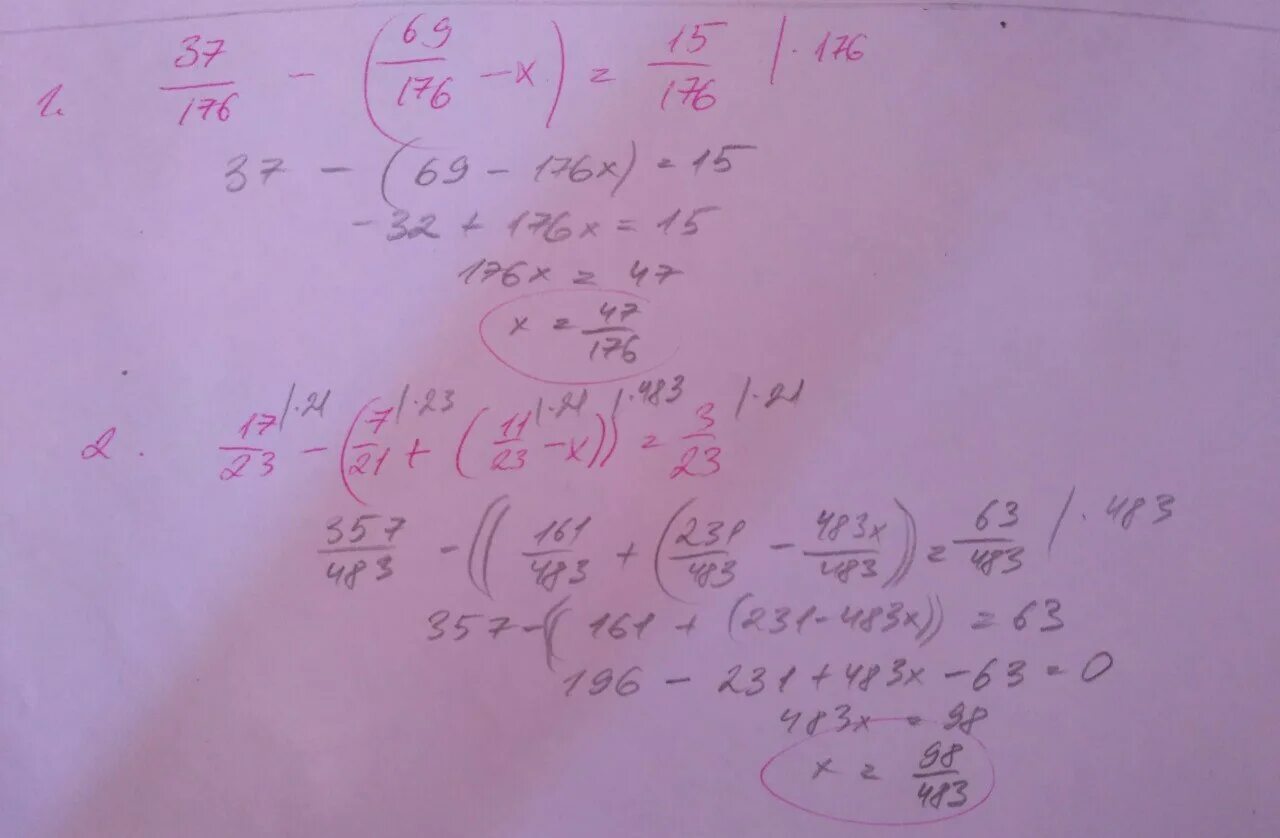 1. 37/176 - (69/176 - x) = 15/176 | · 176
37 - (69 - 176x) = 15
-32 + 176x = 15
176x = 47
x = 47/176
2. 17/23 |·21 - (7/21 |·23 + (11/23 |·21 - x)) |·483 = 3/23 |·21
357/483 - ((161/483 + (231/483 - 483x/483)) = 63/483 | · 483
357 - ((161 + (231 - 483x)) = 63
196 - 231 + 483x - 63 = 0
483x = 98
x = 98/483